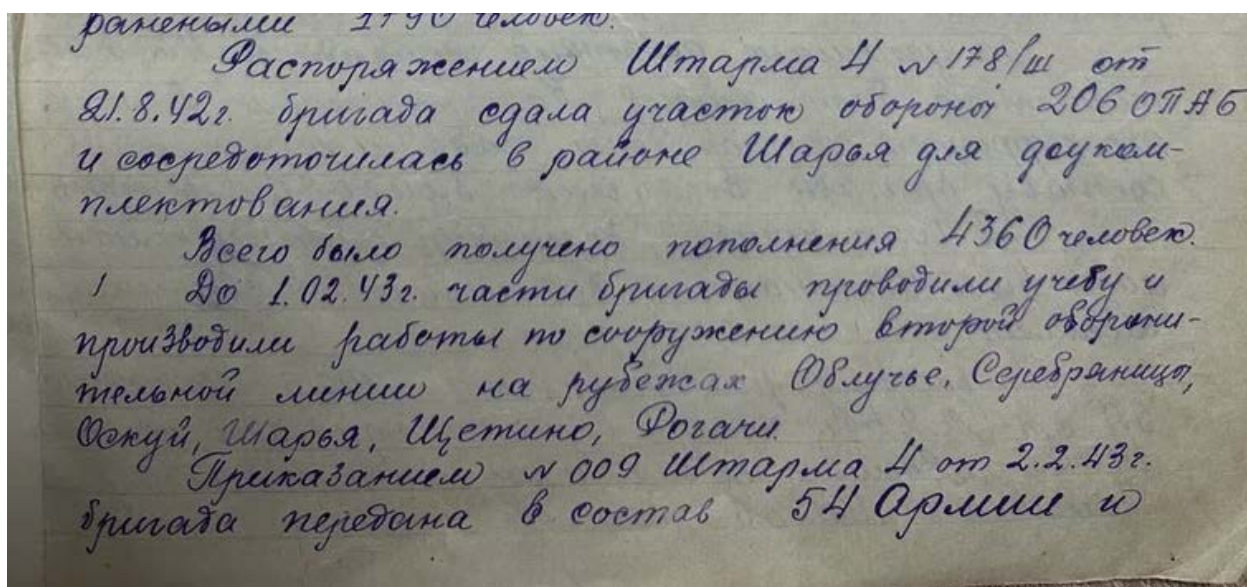 ранеными 1790 человек.
Распоряжением Штарма 4 № 178/ш от
21.8.42г. бригада сдала участок обороны 206 ОПАБ
и сосредоточилась в районе Шарья для доуком-
плектования.
Всего было получено пополнения 4360 человек.
До 1.02.43г. части бригады проводили учебу и
производили работы по сооружению второй оборони-
тельной линии на рубежах Облучье, Серебряницы,
Оскуй, Шарья, Щетино, Рогачи.
Приказанием № 009 Штарма 4 от 2.2.43г.
бригада передана в состав 54 Армии и